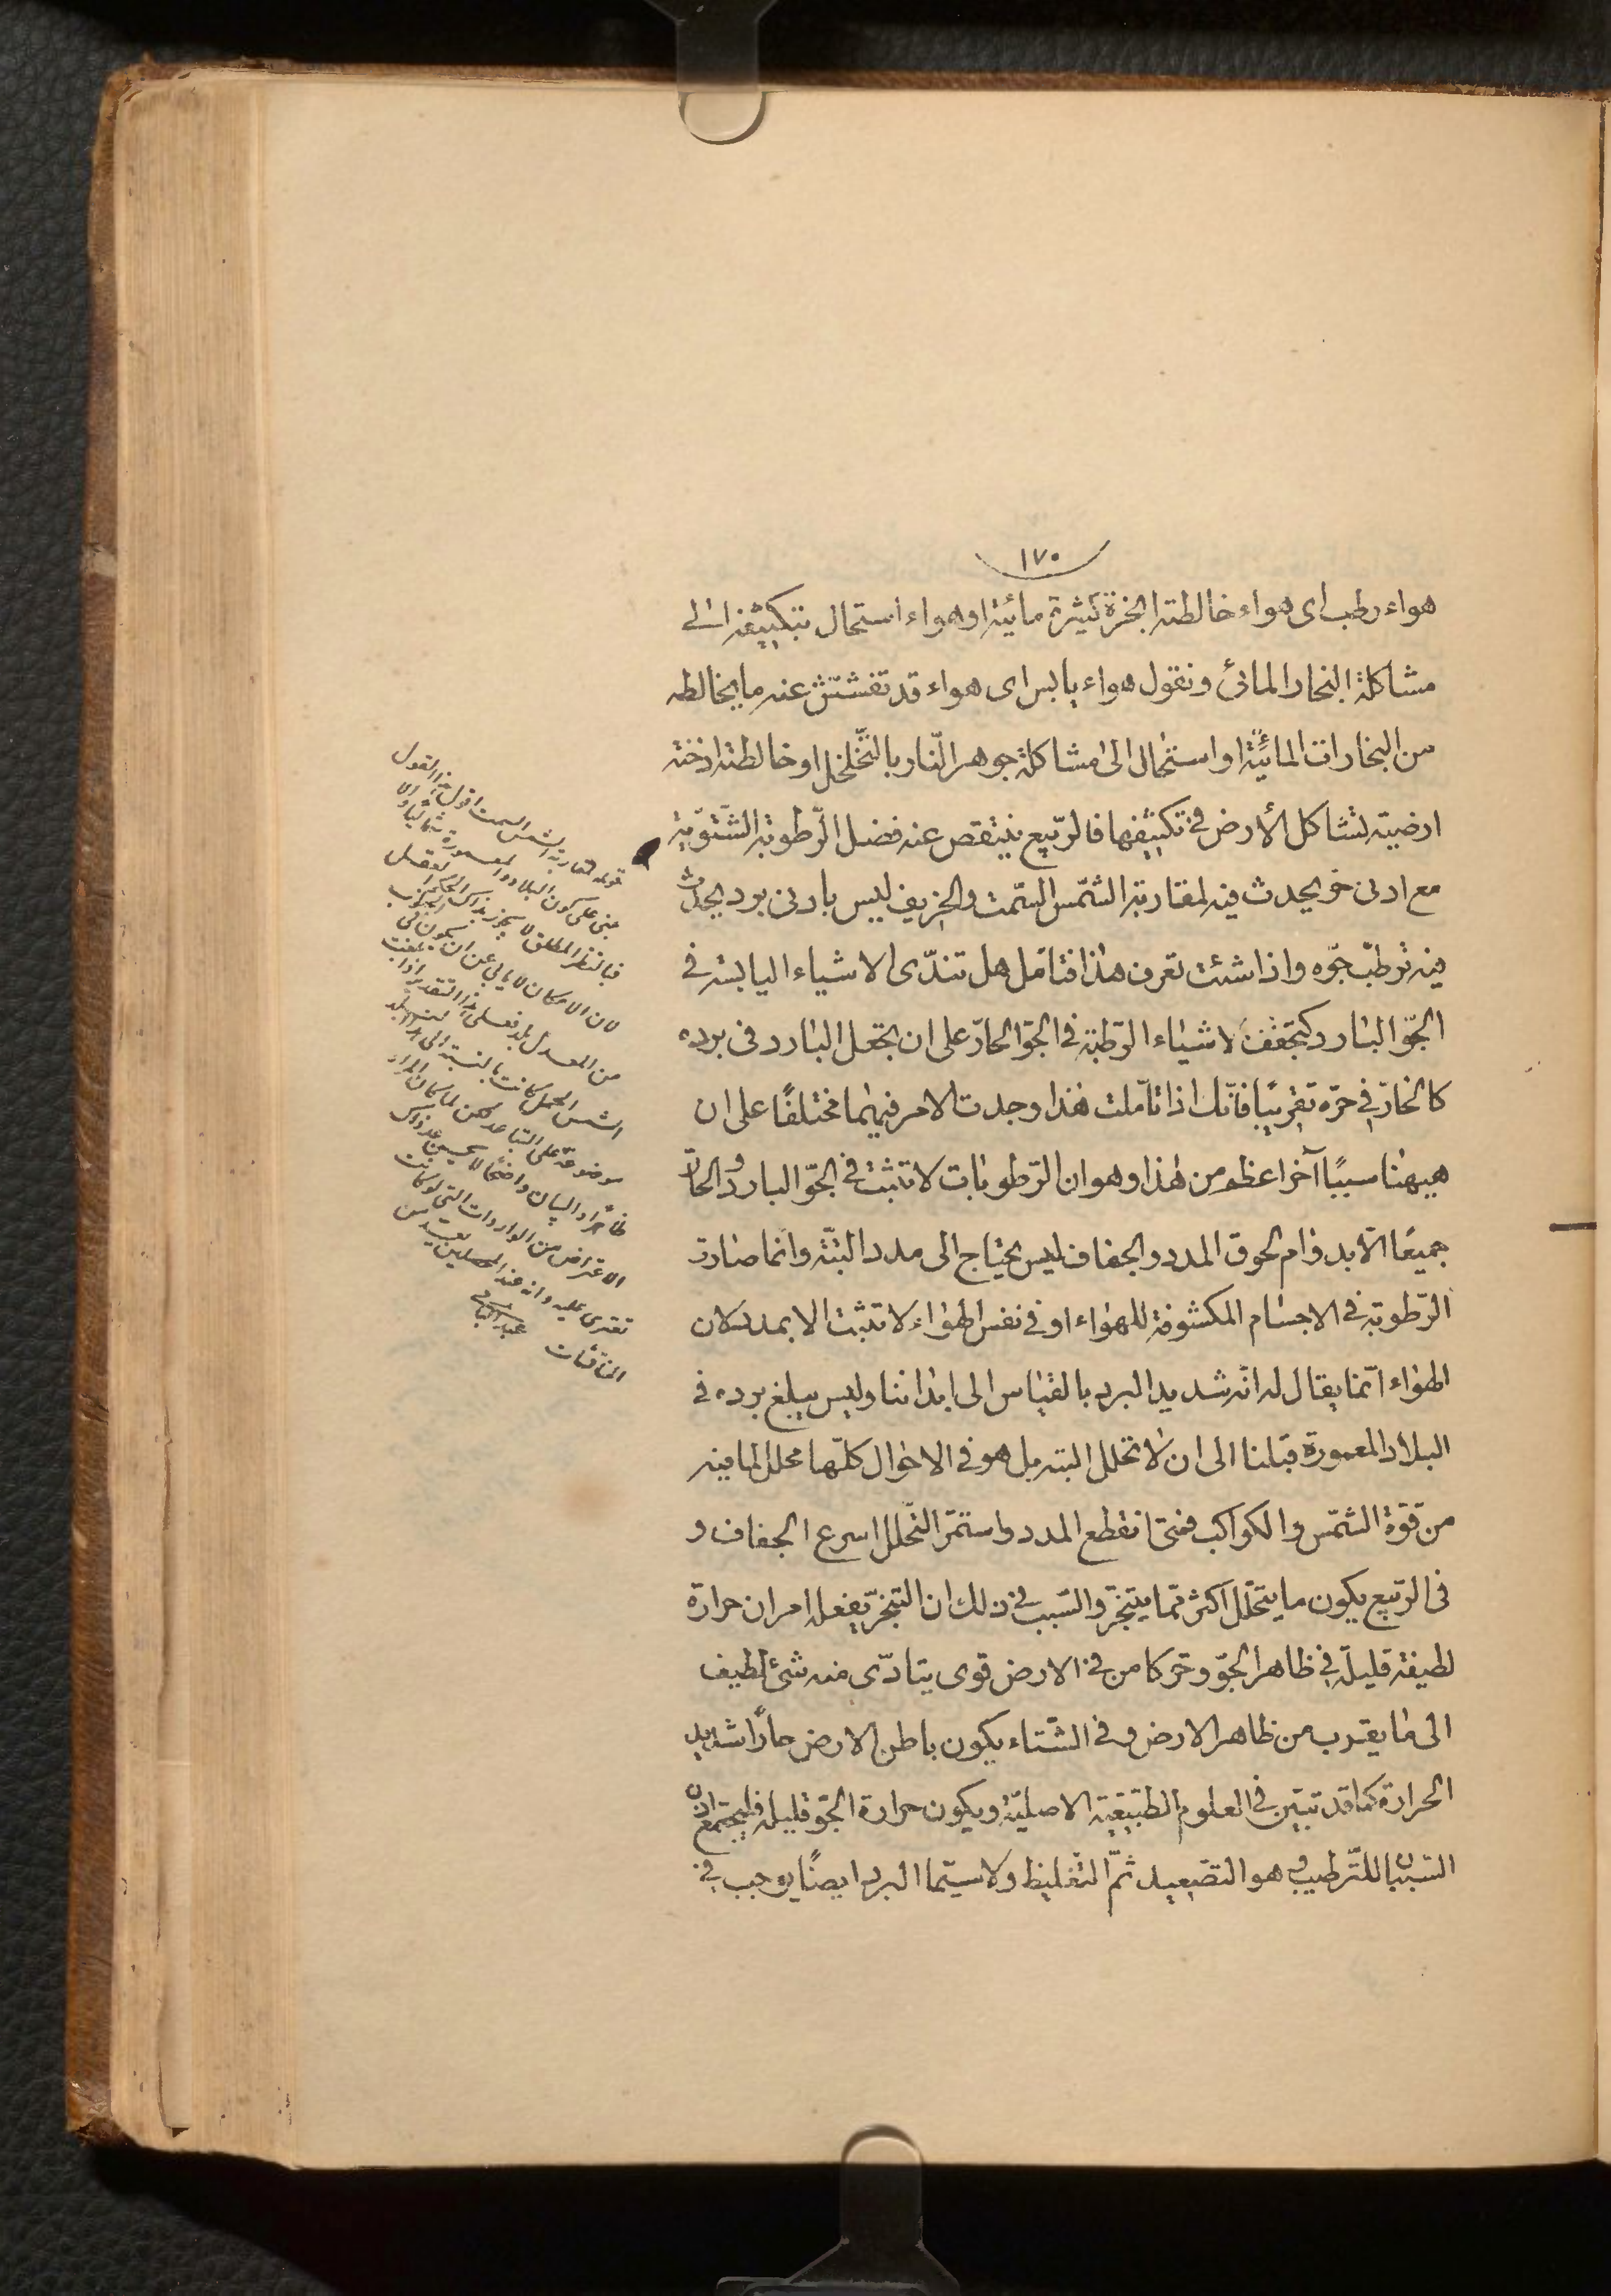 ١٧٠
هواء رطب ای هواء خالطته ابخرة كثيرة مائية او هواء استحال بتكثيفه الى
مشاكلة البخار المائى ونقول هواء يابس ای هواء قد تفشش عنه ما يخالطه
من البخارات المائية او استحال الى مشاكلة جوهر النار بالتخلخل او خالطته ادخنة
ارضية تشاكل الأرض فى تكثيفها فالربيع ينتقص عنه فضل الرطوبة الشتوية
مع ادنى حر يحدث فيه لمقاربة الشمس السمت والخريف ليس بادنى برد يحدث
فيه ترطب جوه واذا شئت تعرف هذا فتامل هل تندى الاشياء اليابسة فى
الجو البارد كتجفف الاشياء الرطبة فى الجو الحار على ان تجعل البارد فى برده
كالحار فى حره تقريبًا فانك اذا تاملت هذا وجدت الامر فيهما مختلفًا على ان
هيهنا سببًا آخر اعظم من هذا وهو ان الرطوبات لا تثبت فى الجو البارد والحار
جميعًا الا بدوام لحوق المدد والجفاف ليس يحتاج الى مدد البتة وانما صارت
الرطوبة فى الاجسام المكشوفة للهواء او فى نفس الهواء لا تثبت الا بمدد لان
الهواء انما يقال له انه شديد البرد بالقياس الى ابداننا وليس يبلغ برده فى
البلاد المعمورة قبلنا الى ان لا تحلل البتة بل هو فى الاحوال كلها محلل لما فيه
من قوة الشمس والكواكب فمتى انقطع المدد واستمر التحلل اسرع الجفاف و
فى الربيع يكون ما يتحلل اكثر مما يتبخر والسبب فى ذلك ان التبخر يفعله امران حرارة
لطيفة قليلة فى ظاهر الجو وحر كامن فى الارض قوى يتادى منه شئ لطيف
الى ما يقرب من ظاهر الارض وفى الشتاء يكون باطن الارض حارًا شديد
الحرارة كما قد تبين فى العلوم الطبيعية الاصلية ويكون حرارة الجو قليلة فليجتمع اذن
السببان للترطيب وهو التصعيد ثم التغليظ ولا سيما البرد ايضًا يوجب فى
قوله لمقاربة الشمس السمت اقول هذا القول
مبنى على كون البلاد المعمورة شمالية والا
فبالنظر المطلق لا يجوز بذلك الحكم العقل
لان الامكان لا يابى عن ان يكون فى الجنوب
من المعدل بلد فعلى هذا التقدير اذا بلغت
الشمس الحمل كانت بالنسبة الى هذا البلد
موضوعة على التباعد لكن لما كان المراد
ظاهرًا والبيان واضحًا لا يحسن عد ذلك
الاعتراض من الواردات التى لو كانت
تقوى عليه وانه عند المحصلين بعيد من
المناقشات عبد الباقى